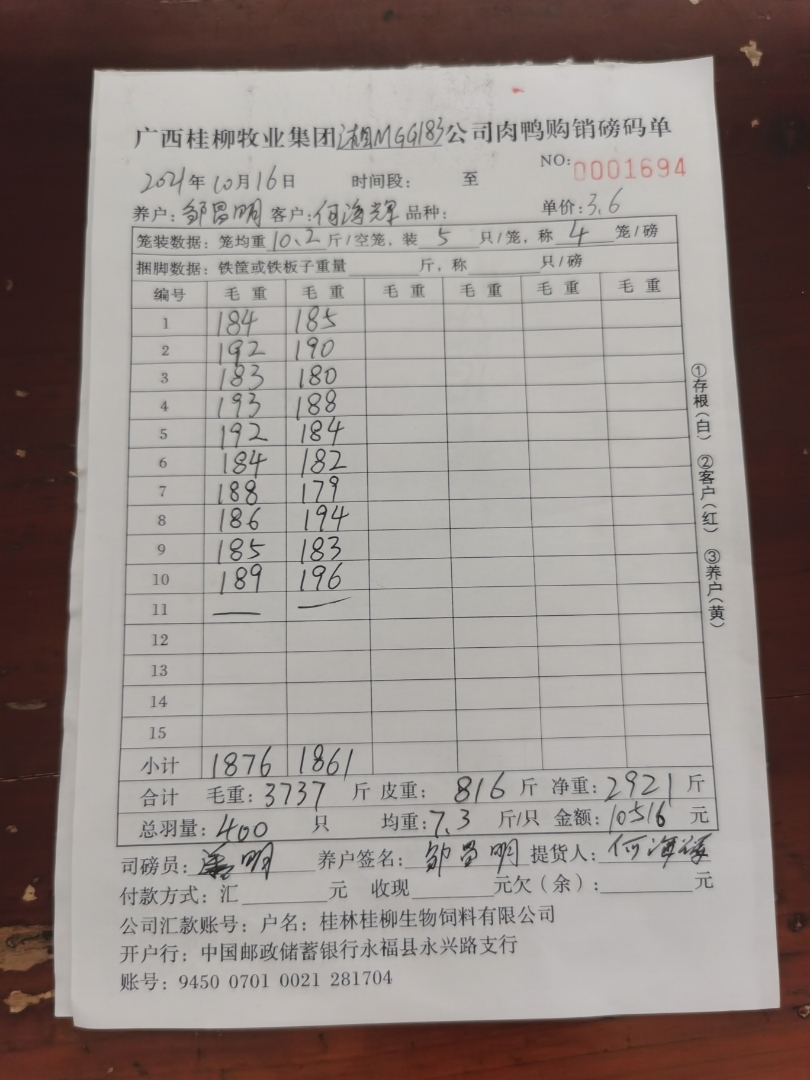 广西桂柳牧业集团湘MGG183公司肉鸭购销磅码单
NO:0001694
2021年10月16日 时间段: 至
养户:邹昌明 客户:何海辉 品种: 单价:3.6
笼装数据:笼均重10.2斤/空笼,装5只/笼,称4笼/磅
捆脚数据:铁筐或铁板子重量 斤,称 只/磅
编号 毛重 毛重 毛重 毛重 毛重 毛重
1 184 185
2 192 190
3 183 180
4 193 188
5 192 184
6 184 182
7 188 179
8 186 194
9 185 183
10 189 196
11 — —
12
13
14
15
小计 1876 1861
合计 毛重:3737斤 皮重:816斤 净重:2921斤
总羽量:400只 均重:7.3斤/只 金额:10516元
司磅员: 明 养户签名:邹昌明 提货人:何海辉
付款方式:汇 元 收现 元欠(余): 元
公司汇款账号:户名:桂林桂柳生物饲料有限公司
开户行:中国邮政储蓄银行永福县永兴路支行
账号:9450 0701 0021 281704
①存根(白) ②客户(红) ③养户(黄)